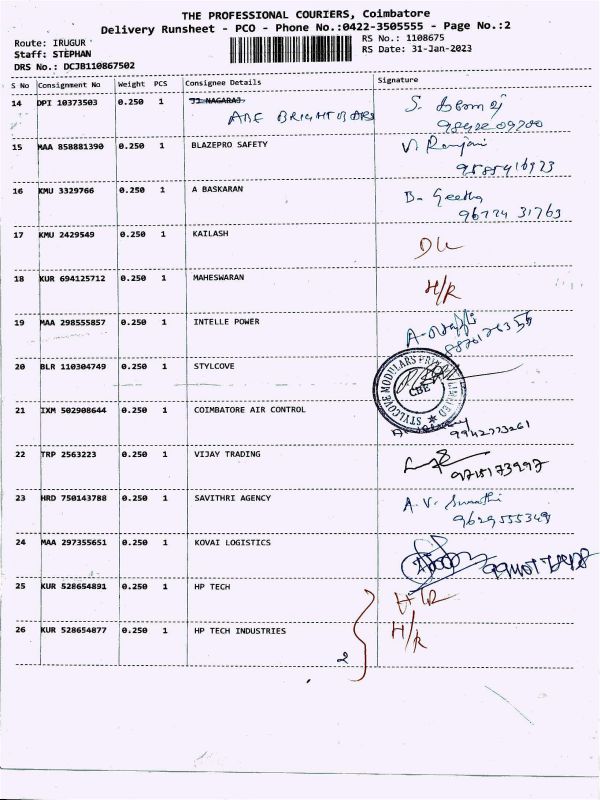 THE PROFESSIONAL COURIERS, Coimbatore
Delivery Runsheet - PCO - Phone No.:0422-3505555 - Page No.:2
Route: IRUGUR
RS No.: 1108675
Staff: STEPHAN
RS Date: 31-Jan-2023
DRS No.: DCJB110867502
S No Consignment No Weight PCS Consignee Details Signature
14 DPI 10373503 0.250 1 JJ NAGARAJ
15 MAA 858881390 0.250 1 BLAZEPRO SAFETY
16 KMU 3329766 0.250 1 A BASKARAN B. Geetha
96774 31763
17 KMU 2429549 0.250 1 KAILASH
18 KUR 694125712 0.250 1 MAHESWARAN H/R
19 MAA 298555857 0.250 1 INTELLE POWER
20 BLR 110304749 0.250 1 STYLCOVE
STYLCOVE MODULARS PRIVATE LIMITED
CBE
21 IXM 502908644 0.250 1 COIMBATORE AIR CONTROL
9942773261
22 TRP 2563223 0.250 1 VIJAY TRADING
9715173997
23 HRD 750143788 0.250 1 SAVITHRI AGENCY A.V. Sumathi
9629555349
24 MAA 297355651 0.250 1 KOVAI LOGISTICS
25 KUR 528654891 0.250 1 HP TECH
26 KUR 528654877 0.250 1 HP TECH INDUSTRIES H/R
2